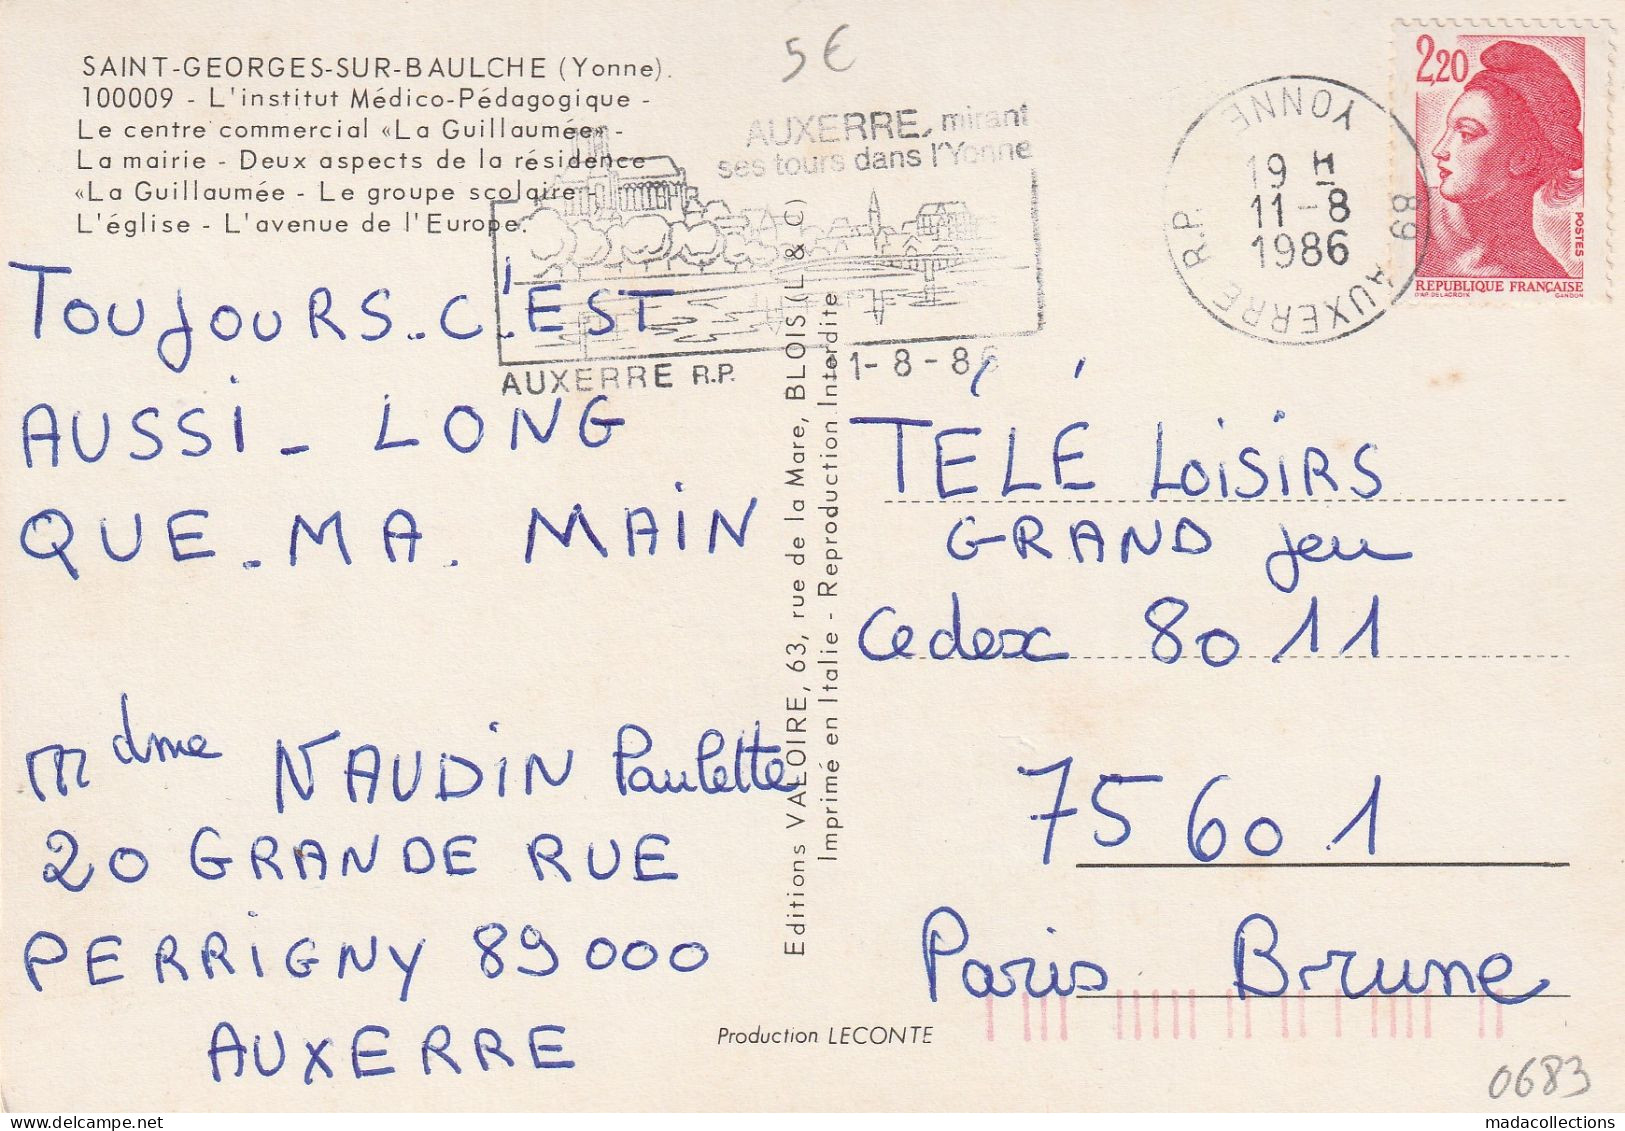 5€
SAINT-GEORGES-SUR-BAULCHE (Yonne).
100009 - L'institut Médico-Pédagogique -
Le centre commercial «La Guillaumée» -
La mairie - Deux aspects de la résidence
«La Guillaumée - Le groupe scolaire -
L'église - L'avenue de l'Europe.
AUXERRE, mirant
ses tours dans l'Yonne
AUXERRE R.P.
1-8-86
YONNE
19 H
11-8
1986
89
AUXERRE R.P.
2,20
POSTES
REPUBLIQUE FRANÇAISE
D'AP. DELACROIX GANDON
TOUJOURS. C'.EST
AUSSI - LONG
QUE - MA. MAIN
Mdme NAUDIN Paulette
20 GRANDE RUE
PERRIGNY 89000
AUXERRE
Editions VALOIRE, 63, rue de la Mare, BLOIS (L & C)
Imprimé en Italie - Reproduction Interdite
TÉLÉ LOISIRS
GRAND jeu
Cedex 8011
75601
Paris Brune
Production LECONTE
0683
madacollections